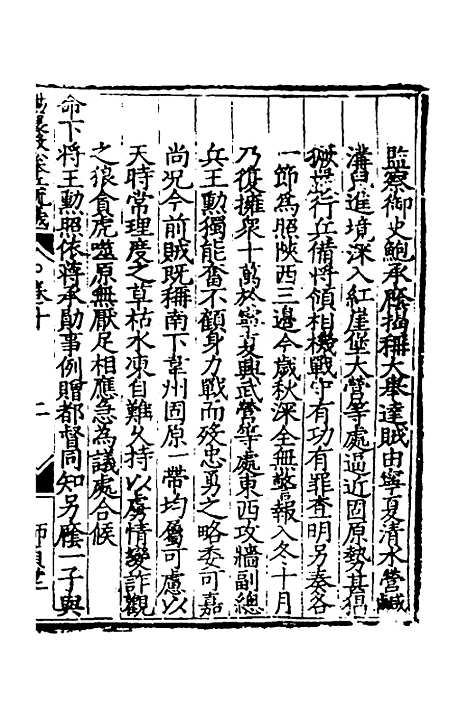 監察御史鮑承廕揭稱大舉達賊由寧夏清水營鹹
溝兒進境深入紅崖堡大營等處逼近固原勢甚猖
獗督行兵備將領相機戰守有功有罪查明另奏各
一節為照陝西三邊今歲秋深全無警報入冬十月
乃復擁衆十萬於寧夏興武營等處東西攻牆副總
兵王勳獨能奮不顧身力戰而歿忠勇之略委可嘉
尚況今前賊既稱南下韋州固原一帶均屬可慮以
天時常理度之草枯水凍自難久持以虜情變詐觀
之狼貪虎噬原無厭足相應急為議處合候
命下將王勳照依蔣承勛事例贈都督同知另廕一子與
卷十
二